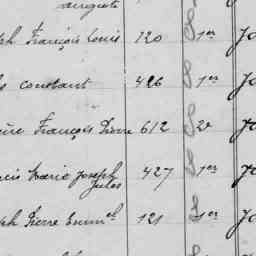 auguste
ph François Louis 120 S 1er Jo
s constant 426 S 1er Jo
François Pierre 612 S 2e Jo
cis Marie Joseph 427 S 1er Jo
Jules
ph Pierre Emm.el 121 S 1er Jo